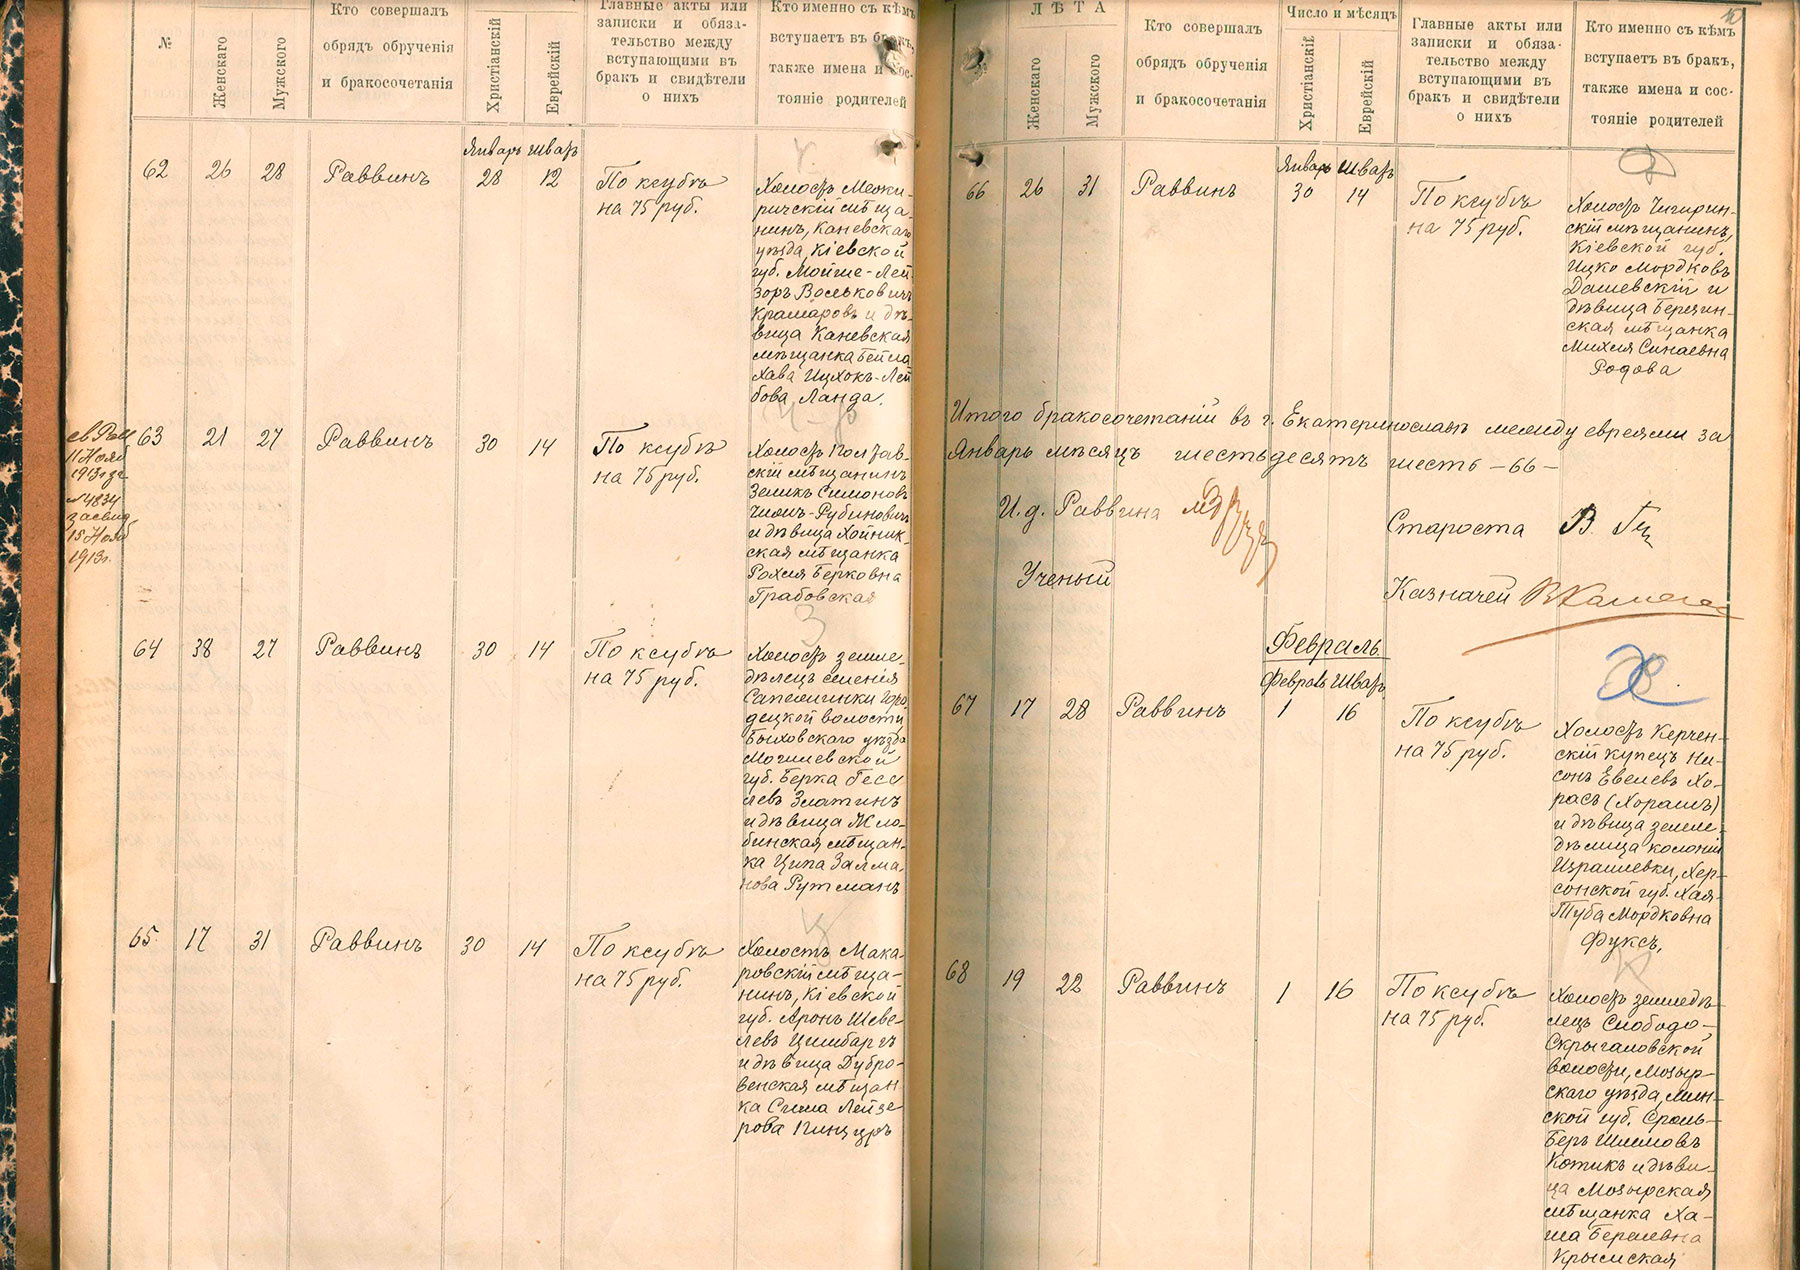 №
Женскаго
Мужского
Кто совершалъ
обрядъ обрученія
и бракосочетанія
Христіанскій
Еврейскій
Главные акты или
записки и обяза-
тельство между
вступающими въ
бракъ и свидѣтели
о нихъ
Кто именно съ кѣмъ
вступаетъ въ бракъ,
также имена и сос-
тояніе родителей
Январь Шватъ
62 26 28 Раввинъ 28 12
По ксубѣ
на 75 руб.
Холостъ Межи-
ричскій мѣща-
нинъ, Каневскаго
уѣзда, Кіевской
губ. Мойше-Лей-
зоръ Воськовичъ
Крамаровъ и дѣ-
вица Каневская
мѣщанка Бейла
Хава Ицхокъ-Лей
бова Ланда.
11 Нояб
1913 г. за
№ 4834
засвид
15 Нояб
1913 г.
63 21 27 Раввинъ 30 14
По ксубѣ
на 75 руб.
Холостъ Полтав-
скій мѣщанинъ
Зеликъ Симоновъ
Рубиновичъ
и дѣвица Хойник-
ская мѣщанка
Рохля Берковна
Грабовская
64 38 27 Раввинъ 30 14
По ксубѣ
на 75 руб.
Холостъ земле-
дѣлецъ селенія
Сапежинки Горо-
децкой волости,
Быховскаго уѣзда
Могилевской
губ. Берка Гесе
левъ Златинъ
и дѣвица Жло-
бинская мѣщан-
ка Ципа Залма-
нова Рутманъ
65 17 31 Раввинъ 30 14
По ксубѣ
на 75 руб.
Холостъ Мака-
ровскій мѣща-
нинъ, Кіевской
губ. Аронъ Шеве-
левъ Цимбаргъ
и дѣвица Дубро-
венская мѣщан
ка Сима Лейзе
рова Пинцуръ
ЛѢТА
Женскаго
Мужского
Кто совершалъ
обрядъ обрученія
и бракосочетанія
Число и мѣсяцъ
Христіанскій
Еврейскій
Главные акты или
записки и обяза-
тельство между
вступающими въ
бракъ и свидѣтели
о нихъ
Кто именно съ кѣмъ
вступаетъ въ бракъ,
также имена и сос-
тояніе родителей
Январь Шватъ
66 26 31 Раввинъ 30 14
По ксубѣ
на 75 руб.
Холостъ Чигирин-
скій мѣщанинъ,
Кіевской губ.
Ицко Мордковъ
Дашевскій и
дѣвица Березин-
ская мѣщанка
Михля Синаевна
Родова
Итого бракосочетаній въ г. Екатеринославѣ между евреями за
Январь мѣсяцъ шестьдесятъ шесть - 66 -
И. д. Раввина
Староста
Ученый
Казначей
Февраль
Февраль Шватъ
67 17 28 Раввинъ 1 16
По ксубѣ
на 75 руб.
Холостъ Керчен-
скій купецъ Ни-
сонъ Евелевъ Хо-
расъ (Хорашъ)
и дѣвица земле-
дѣлица колоніи
Израилевки, Хер-
сонской губ. Хая-
Туба Мордковна
Фуксъ,
68 19 22 Раввинъ 1 16
По ксубѣ
на 75 руб.
Холостъ земледѣ
лецъ Слободо-
Скрыгаловской
волости, Мозыр-
скаго уѣзда, Мин-
ской губ. Сроль-
Беръ Шлимовъ
Котикъ и дѣви-
ца Мозырская
мѣщанка Ха-
ша Берелевна
Крымская